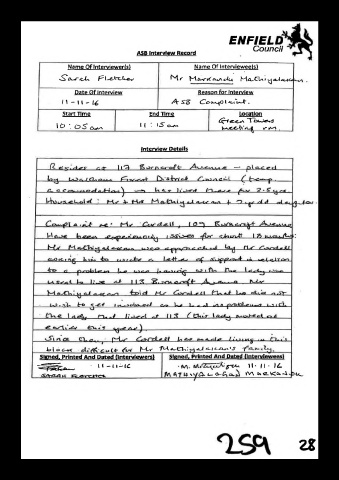 ENFIELD
Council
ASB Interview Record
Name Of Interviewer(s) Name Of Interviewee(s)
Sarah Fletcher Mr Markandu Mathiyalagan.
Date Of Interview Reason for Interview
11-11-16 ASB Complaint.
Start Time End Time Location
10:05am 11:15am Green Towers
meeting rm.
Interview Details
Resides at 117 Burncroft Avenue – placed
by Waltham Forest District Council (temp.
accommodation) has lived there for 2.5 yrs
Household: Mr + Mrs Mathiyalagan + daughter
Complaint re: Mr Cordell, 109 Burncroft Avenue
Have been experiencing issues for about 18 months:
Mr Mathiyalagan was approached by Mr Cordell
asking him to write a letter of support in relation
to a problem he was having with the lady who
used to live at 113 Burncroft Avenue. Mr
Mathiyalagan told Mr Cordell that he did not
wish to get involved as he had no problems with
the lady that lived at 113 (this lady moved out
earlier this year).
Since then, Mr Cordell has made living in this
block difficult for Mr Mathiyalagan's family.
Signed, Printed And Dated (Interviewers) Signed, Printed And Dated (Interviewees)
11-11-16 11.11.16
SARAH FLETCHER MATHIYALAGAN MARKANDU
259 28